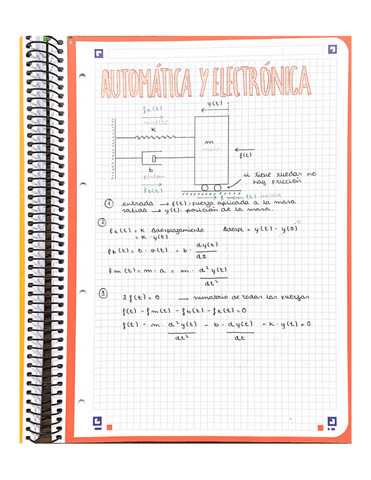 AUTOMÁTICA Y ELECTRÓNICA
fk(t)
y(t)
muelle
k
m
f(t)
b
pistón
fb(t)
si tiene ruedas no
hay fricción
f masa (t) inercia
① entrada → f(t): fuerza aplicada a la masa
salida → y(t) posición de la masa.
②
fk(t) = k · Δdesplazamiento Δdespl = y(t) - y(0)
= k · y(t)
fb(t) = b · v(t) = b · dy(t)/dt
fm(t) = m · a = m · d²y(t)/dt²
③ Σf(t) = 0 → sumatorio de todas las fuerzas
f(t) - fm(t) - fb(t) - fk(t) = 0
f(t) - m · d²y(t)/dt² - b · dy(t)/dt - k · y(t) = 0